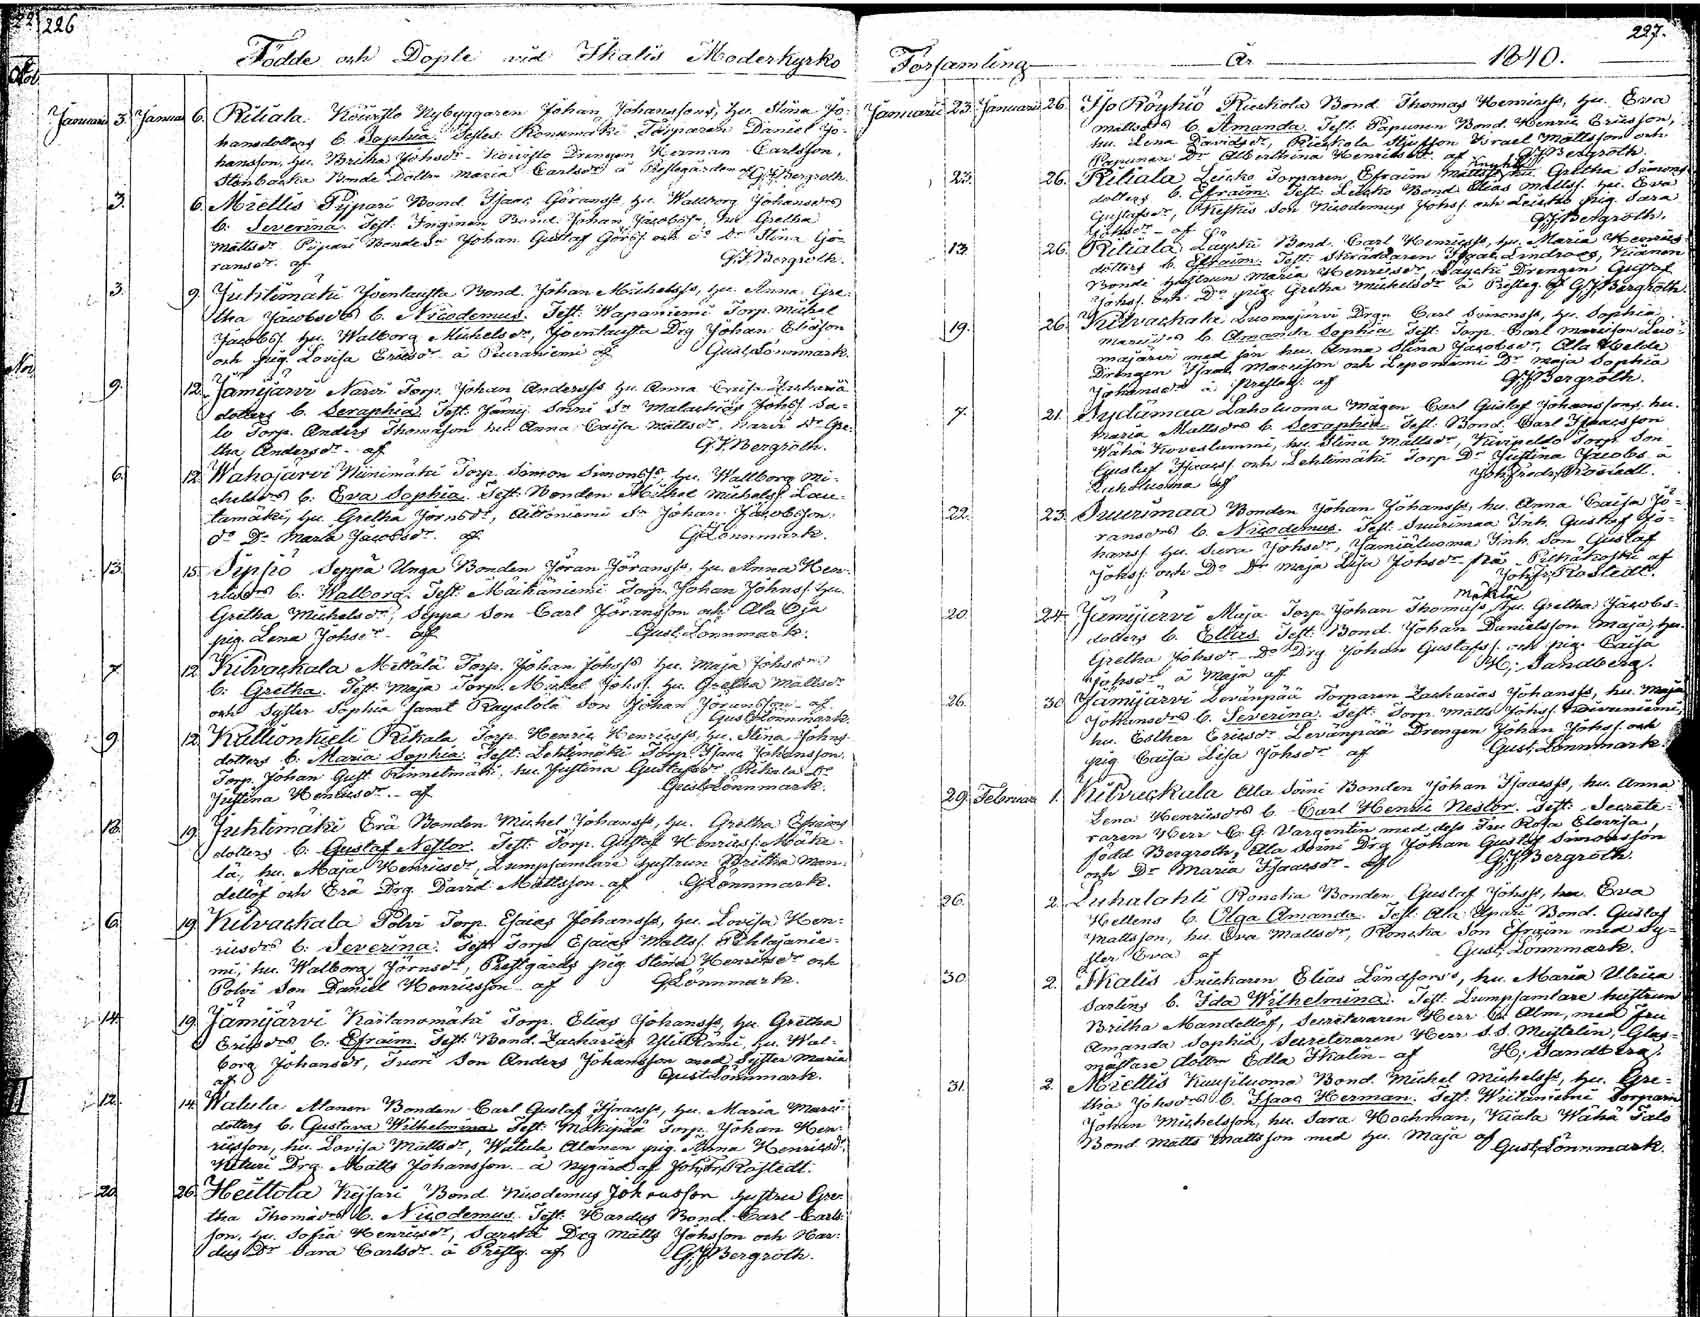 226
Födde och Döpte vid Ikalis Moderkyrko
Januarii 3. Januarii 6. Riitiala Nybyggaren Johan Johanssons, hu. Stina Jo-
hansdotters b. Sophia. Testes Torparen Daniel Jo-
hansson, hu. Britha Johsdr. Drengen Herman Carlsson,
Bonde Dottn Maria Carlsdr. å Prestgården af G.J. Bergroth.
3. 6. Miettis Pippari Bond. Isaac Göranss. hu. Wallborg Johansdrs
b. Severina. Test. Bond. Johan Jacobss. hu. Gretha
Mattsdr. Pippari Bonde Sn Johan Gustaf Görss. och do Dr Stina Gö-
ransdr. af G.J. Bergroth.
3. 9. Juhtimäki Bond. Johan Michelss, hu. Anna Gre-
tha Jacobsdrs b. Nicodemus. Test. Wapaniemi Torp. Michel
Jacobss. hu. Walborg Michelsdr, Drg Johan Eliasson
och pig. Lovisa Ericsdr. å af Gust. Lönnmark.
9. 12. Jämijärvi Narvi Torp. Johan Anderss. hu. Anna Caisa
dotters b. Seraphia. Test. Jämij. Soini Sn Malachias Johss. Sa-
lo Torp. Anders Thomasson hu. Anna Caisa Mattsdr. Narvi Dr Gre-
tha Andersdr. af G.J. Bergroth.
6. 12. Wahojärvi Niinimäki Torp. Simon Simonss, hu. Wallborg Mi-
chelsdrs b. Eva Sophia. Test. Bonden Michel Michelss. Lau-
tamäki, hu. Gretha Jörnsdr, Aitoniemi Sn Johan Jacobsson,
do Dr Maria Jacobsdr. af G. Lönnmark.
13. 15. Sipsiö Seppä Unga Bonden Jöran Jöranss, hu. Anna Hen-
ricsdrs b. Walborg. Test. Torp. Johan Johnss. hu.
Gretha Michelsdr, Seppä Son Carl Jöransson och Ala Oja
pig. Lena Johsdr. af Gust. Lönnmark.
7. 12. Kilvackala Mettälä Torp. Johan Johss hu. Maja Johsdrs
b. Gretha. Test. Maja Torp. Michel Johss. hu. Gretha Mattsdr
och Syster Sophia samt Son Johan Joransson af
Gust. Lönnmark.
9. 12. Kallionkieli Rikala Torp. Henric Henricss, hu. Stina Johns
dotters b. Maria Sophia. Test. Lehtimäki Torp. Isaac Johansson,
Torp. Johan Gust. hu. Justina Gustafsdr. Rikala Dr
Justina Henricsdr. af Gust. Lönnmark.
13. 19. Juhtimäki Erä Bonden Michel Johanss, hu. Gretha Efraims
dotters b. Gustaf Nestor. Test. Torp. Gustaf Henricss. Mäke-
lä, hu. Maja Henricsdr, Lumpsamlare hustrun Britha Man-
dellöf och Erä Drg. David Mattsson af G. Lönnmark.
6. 19. Kilvackala Polvi Torp. Esaias Johanss, hu. Lovisa Hen-
ricsdrs b. Severina. Test. Torp. Esaias Matts. Pihlajanie-
mi, hu. Walborg Jörnsdr, Prestgårds pig. Stina Henricsdr och
Polvi Son Daniel Henricsson af G. Lönnmark.
14. 19. Jämijärvi Torp. Elias Johanss, hu. Gretha
Ericsdrs b. Efraim. Test. Bond. Zacharias Yli Rämi, hu. Wal-
borg Johansdr, Son Anders Johansson med Syster Maria
af Gust. Lönnmark.
12. 14. Watula Alanen Bonden Carl Gustaf Isacss, hu. Maria
dotters b. Gustava Wilhelmina Test. Mäkipää Torp. Johan Hen-
ricsson, hu. Lovisa Mattsdr, Watula Alanen pig. Anna Henricsdr,
Drg. Matts Johansson å Nygård af Joh. Fr. Rostedt.
20. 26. Heittola Keisari Bond Nicodemus Johansson hustru Gre-
tha Thomasdrs b. Nicodemus. Test. Hardus Bond. Carl Carls-
son, hu. Sofia Henricsdr, Drg Matts Johsson och Har-
dus Dr Sara Carlsdr. å Prestg. af G.J. Bergroth.
227.
Församling År 1840.
Januarii 23. Januarii 26. Iso Röyhiö Rieskola Bond Thomas Henricss, hu. Eva
Mattsdrs b. Amanda. Test. Papunen Bond. Henric Ericsson,
hu. Lena Davidsdr, Rieskola Israel Mattsson och
Papunen Dr Albertina Henricsdr. af G.J. Bergroth.
22. 26. Riitiala Leisko Torparen Efraim Mattss, hu. Gretha Simons
dotters b. Efraim. Test. Leisko Bond Elias Mattss. hu. Eva
Gustafsdr, Son Nicodemus Johss. och Leisko pig. Sara
G.J. Bergroth.
13. 26. Riitiala Bond. Carl Henricss, hu. Maria Henrics
dotters b. Efraim. Test. Skräddaren Isaac Lindroos,
Bonde Hustrun Maria Henricsdr, Drengen Gustaf
Johss. och Dr pig. Gretha Michelsdr å Prestg. af G.J. Bergroth.
19. 26. Kilvackala Luomajärvi Drgn Carl Simonss, hu. Sophia
b. Amanda Sophia Test. Torp. Carl Luo-
majärvi med sin hu. Anna Stina Jacobsdr, Ala
Drengen Isaac och Leponiemi Dr Maja Sophia
Johansdr å Prestg. af G.J. Bergroth.
7. 21. Lahdvoma Mågen Carl Gustaf Johanssons, hu.
Maria Mattsdrs b. Seraphia. Test. Bond. Carl Isacsson
Wähä Koveslammi, hu. Stina Mattsdr, Torp. Son
Gustaf Isacss. och Lehtimäki Torp. Dr Justina Jacobs. å
af Joh. Fredr. Rostedt.
22. 23. Suurimaa Bonden Johan Johanss, hu. Anna Caisa Jö-
ransdrs b. Nicodemus. Test. Suurimaa Inh. Gustaf Jo-
hanss. hu. Johsdr, Jämiäluoma Inh. Son Gustaf
Johss. och Do Dr Maja Lisa Johsdr frå Pitkäkoski af
Joh. Fr. Rostedt.
20. 24. Jämijärvi Maja Torp. Johan Thomass, hu. Gretha Jacobs-
dotters b. Elias. Test. Bond. Johan Danielsson Maja, hu.
Gretha Johsdr. Do Drg Johan Gustafss. och pig. Caisa
Johsdr å Maja af H. Sandberg.
26. 30. Jämijärvi Levänpää Torparen Zacharias Johanss, hu. Maja
Johansdrs b. Severina. Test. Torp. Matts Johss.
hu. Esther Ericsdr. Levänpää Drengen Johan Johss. och
pig Caisa Lisa Johsdr af Gust. Lönnmark.
29. Februarii 1. Kilvackala Alla Soini Bonden Johan Isacss, hu. Anna
Lena Henricsdrs b. Carl Henric Nestor. Test. Secrete-
raren Herr C. G. Vargentin med dess Fru Rosa Elovisa,
född Bergroth, Ala Soini Drg Johan Gustaf Simonsson
och Dr Maria Isacsdr. af G.J. Bergroth.
26. 2. Luhalahti Ronska Bonden Gustaf Johss, hu. Eva
Hellens b. Olga Amanda. Test. Ala Bond. Gustaf
Mattsson, hu. Eva Mattsdr, Ronska Son Efraim med Sy-
ster Eva af Gust. Lönnmark.
30. 2. Ikalis Snickaren Elias Lindfors's, hu. Maria Ulrica
Sarlins b. Ida Wilhelmina. Test. Lumpsamlare hustrun
Britha Mandellöf, Secreteraren Herr G. Alm, med fru
Amanda Sophia, Secreteraren Herr S.S. Mustelin, Glas-
mästare dottrn Edla Ikalin af H. Sandberg.
31. 2. Miettis Kuusiluoma Bond. Michel Michelss, hu. Gre-
tha Johsdrs b. Isaac Herman. Test. Torparen
Johan Michelsson, hu. Sara Hochman, Wähä Talo
Bond Matts Mattsson med hu. Maja af Gust. Lönnmark.